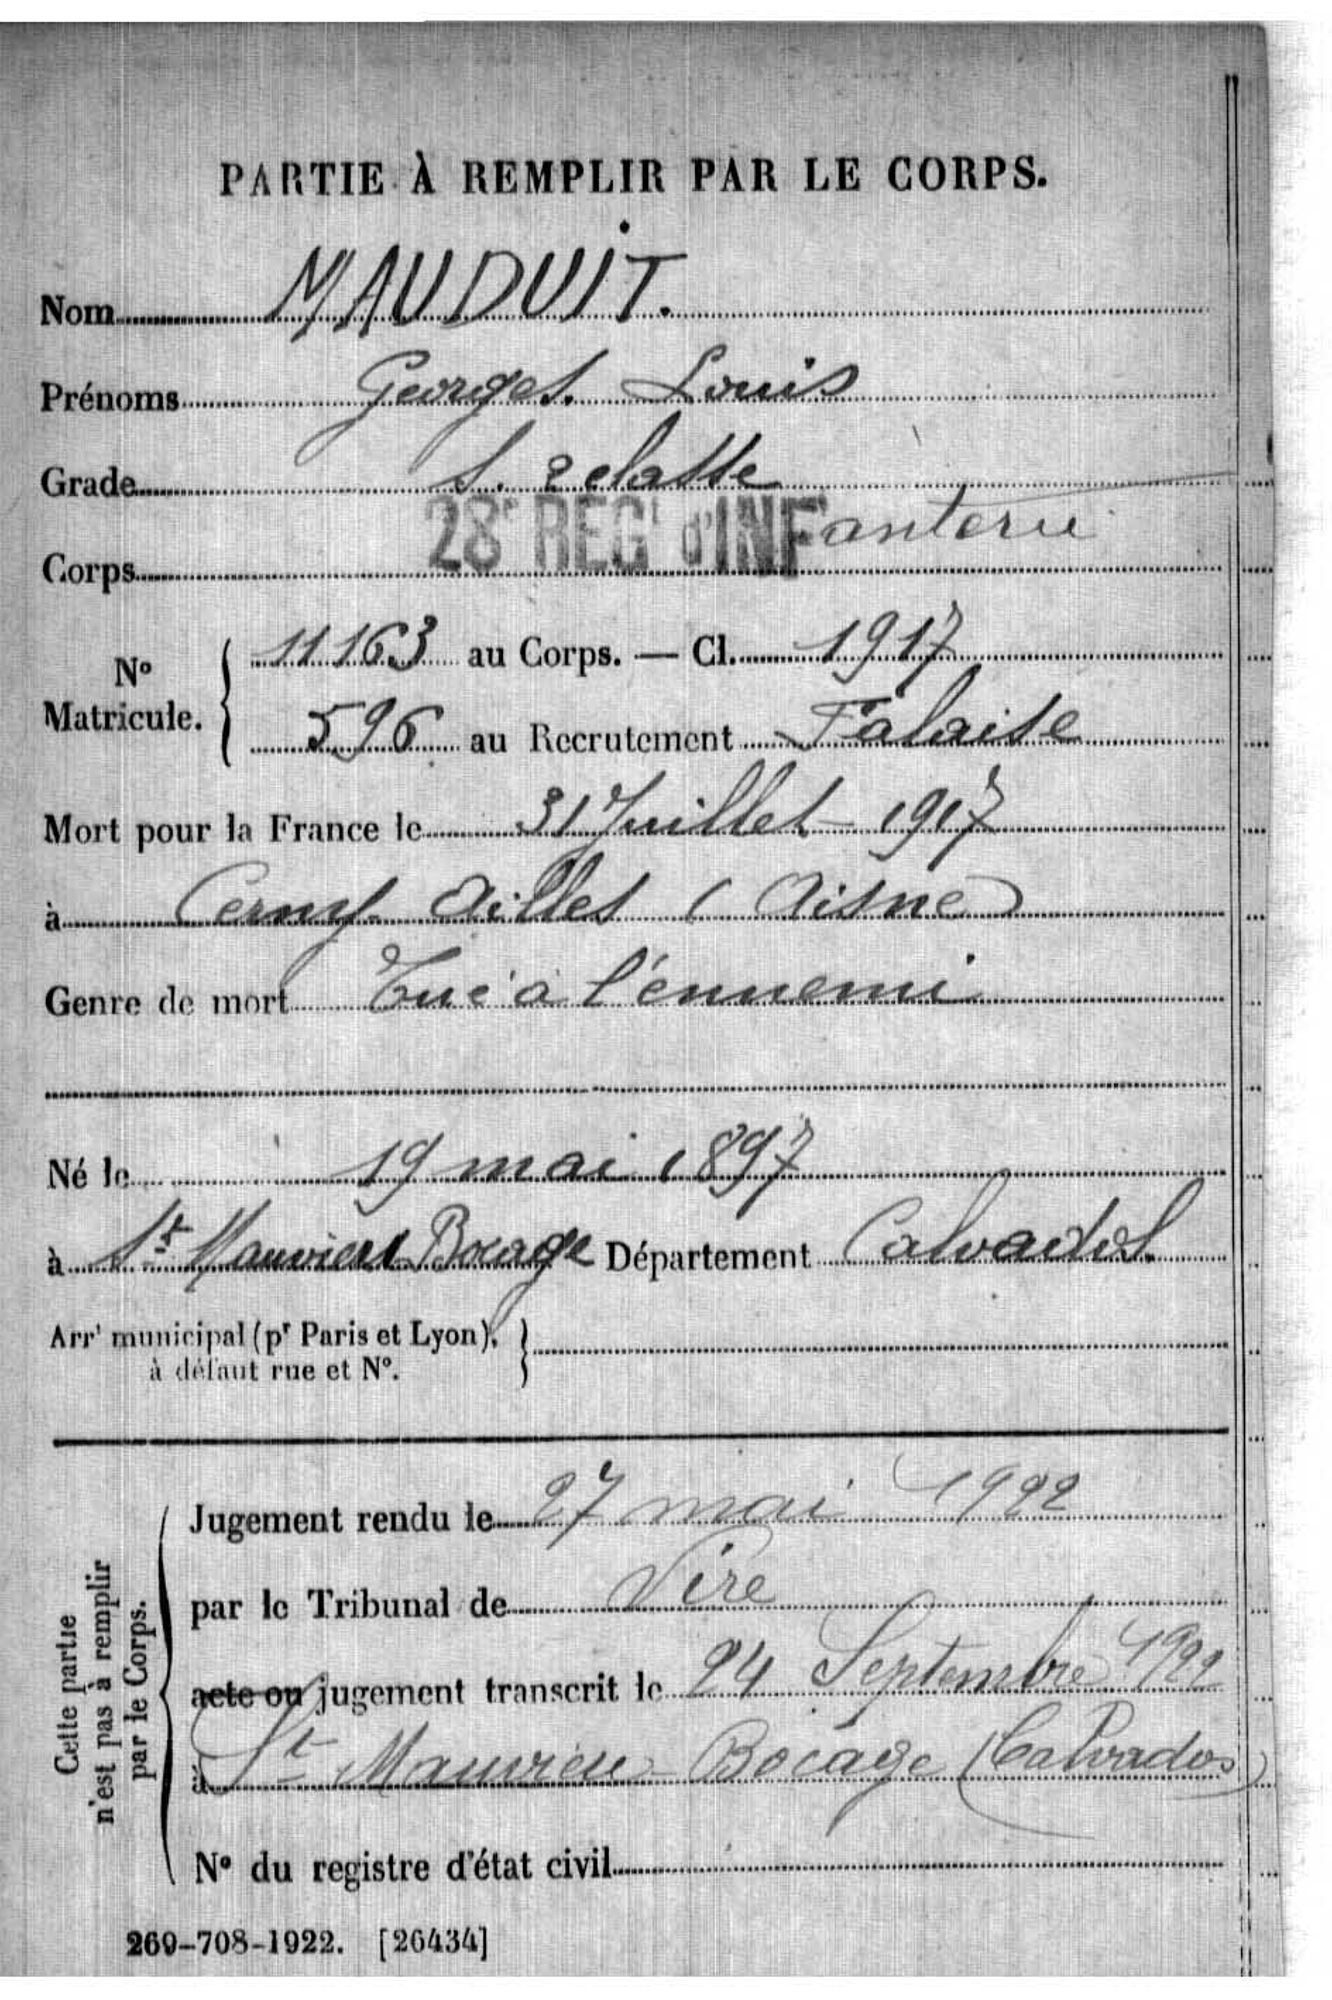 PARTIE À REMPLIR PAR LE CORPS.
Nom MAUDUIT.
Prénoms Georges. Louis
Grade S. 2 classe
28e REGt d'INFanterie
Corps
No Matricule. { 11163 au Corps. — Cl. 1917
596 au Recrutement Falaise
Mort pour la France le 31 Juillet 1917
à Cerny-Ailles (Aisne)
Genre de mort Tué à l'ennemi
Né le 19 mai 1897
à St Manvieu Bocage Département Calvados.
Arrt municipal (pr Paris et Lyon), }
à défaut rue et No.
Cette partie n'est pas à remplir par le Corps.
Jugement rendu le 27 mai 1922
par le Tribunal de Vire
acte ou jugement transcrit le 24 Septembre 1922
à St Manvieu-Bocage (Calvados)
No du registre d'état civil
269-708-1922. [26434]